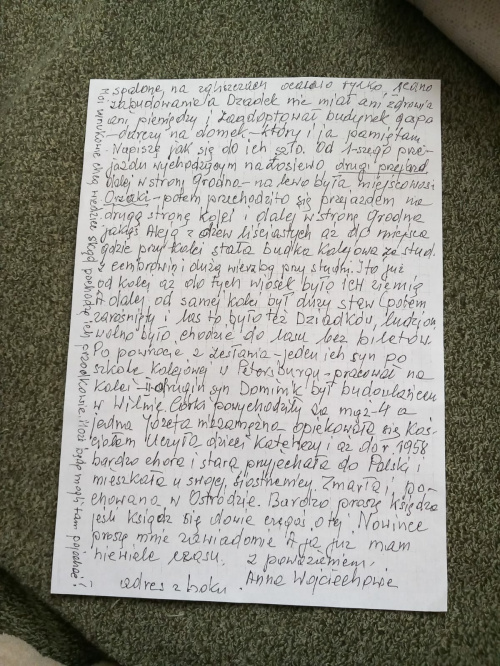 spalone, na zgliszczach ocalało tylko, jedno
zabudowanie a Dziadek nie miał ani zdrowia
ani pieniędzy i zaadoptował budynek gospo
-darczy na domek – który i ja pamiętam.
Napiszę jak się do ich szło. Od 1-szego prze-
jazdu wychodzącym na Łosiewo drugi przejazd
dalej w stronę Grodna – na lewo była miejscowość
– potem przechodziło się przejazdem na
drugą stronę kolei i dalej w stronę Grodna
jakąś Aleją z drzew liściastych aż do miejsca
gdzie przy kolei stała budka kolejowa ze stud.
z cembrowin i dużą wierzbą przy studni. I to już
od kolei aż do tych wiosek było ICH ziemią
A dalej od samej kolei był duży staw (potem
zarośnięty i las to było też Dziadków, ludziom
wolno było chodzić do lasu bez biletów.
Po powrocie z zesłania – jeden ich syn po
szkole kolejowej w Petersburgu – pracował na
kolei – drugi syn Dominik był budowlańcem
w Wilnie. Córki powychodziły za mąż – 4 a
jedna Józefa niezamężna opiekowała się Koś-
ciołem Uczyła dzieci katechezy i aż do r. 1958
bardzo chora i stara przyjechała do Polski i
mieszkała u swojej siostrzenicy. Zmarła i po-
chowana w Ostródzie. Bardzo proszę Księdza
jeśli Ksiądz się dowie czegoś o tej Nowince
proszę mnie zawiadomić A ja już mam
niewiele czasu. z poważaniem.
adres z boku. Anna
Moi wnukowie chcą wiedzieć skąd pochodzą ich przodkowie. Może będą mogli tam pojechać!